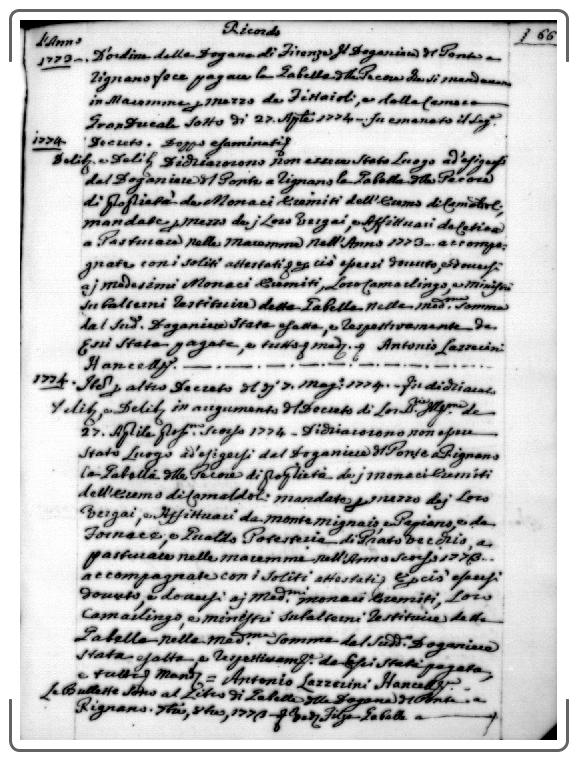 Ricordo
§ 66
d'Anno
1773 . D'ordine della Dogana di Firenze il Doganiere del Ponte a
Rignano fece pagare la Gabella delle Pecore che si mandarono
in Maremma p mezzo de Fittaioli, e dalla Camera
GranDucale sotto di 27. Aprile 1774 fu emanato il seg.
1774 Decreto. Doppo esaminati
Delib. e Delib. Dichiararono non essere stato luogo ad'esigersi
dal Doganiere del Ponte a Rignano la Gabella delle Pecore
di proprietà de Monaci Eremiti dell'Eremo di Camaldol.
mandate p mezzo dei Loro Vergai, e Affittuari da Cetica
a Pasturare nelle maremme nell'Anno 1773 accompa:
gnate con i soliti attestati e perciò essersi dovuto, e doversi
ai medesimi Monaci Eremiti, Loro Camarlingo, e ministri
subalterni restituire detta Gabella nella med.ma somma
dal sud.o Doganiere stata esatta, e respettivamente da
Essi stata pagata, e tutto Antonio Lazzerini
Cancell.
1774. Ite p altro Decreto del dì 7. Mag. 1774 fu dichiarato
Delib. e Delib. in augumento del Decreto di Lor de
27. Aprile pros. scorso 1774 Dichiararono non essere
stato Luogo ad'esigersi dal Doganiere del Ponte a Rignano
la Gabella delle Pecore di proprietà dei monaci Eremiti
dell'Eremo di Camaldol. mandate p mezzo dei Loro
Vergai, e Affittuari da montemignaio, e Papiano, e da
Fornace, e Potesteria di Prato vecchio, a
pasturare nelle maremme nell'Anno scorso 1773
accompagnate con i soliti attestati, e perciò essersi
dovuto, e doversi ai Med.mi monaci Eremiti, Loro
Camarlingo, e ministri subalterni restituire detta
Gabella nella med.ma somma dal sudd. Doganiere
stata esatta e respettivam. da Essi stata pagata,
e tutto Mand = Antonio Lazzerini Cancell.
Le Bullette sono al Libro di Gabelle della Dogana del Ponte a
Rignano. 1773